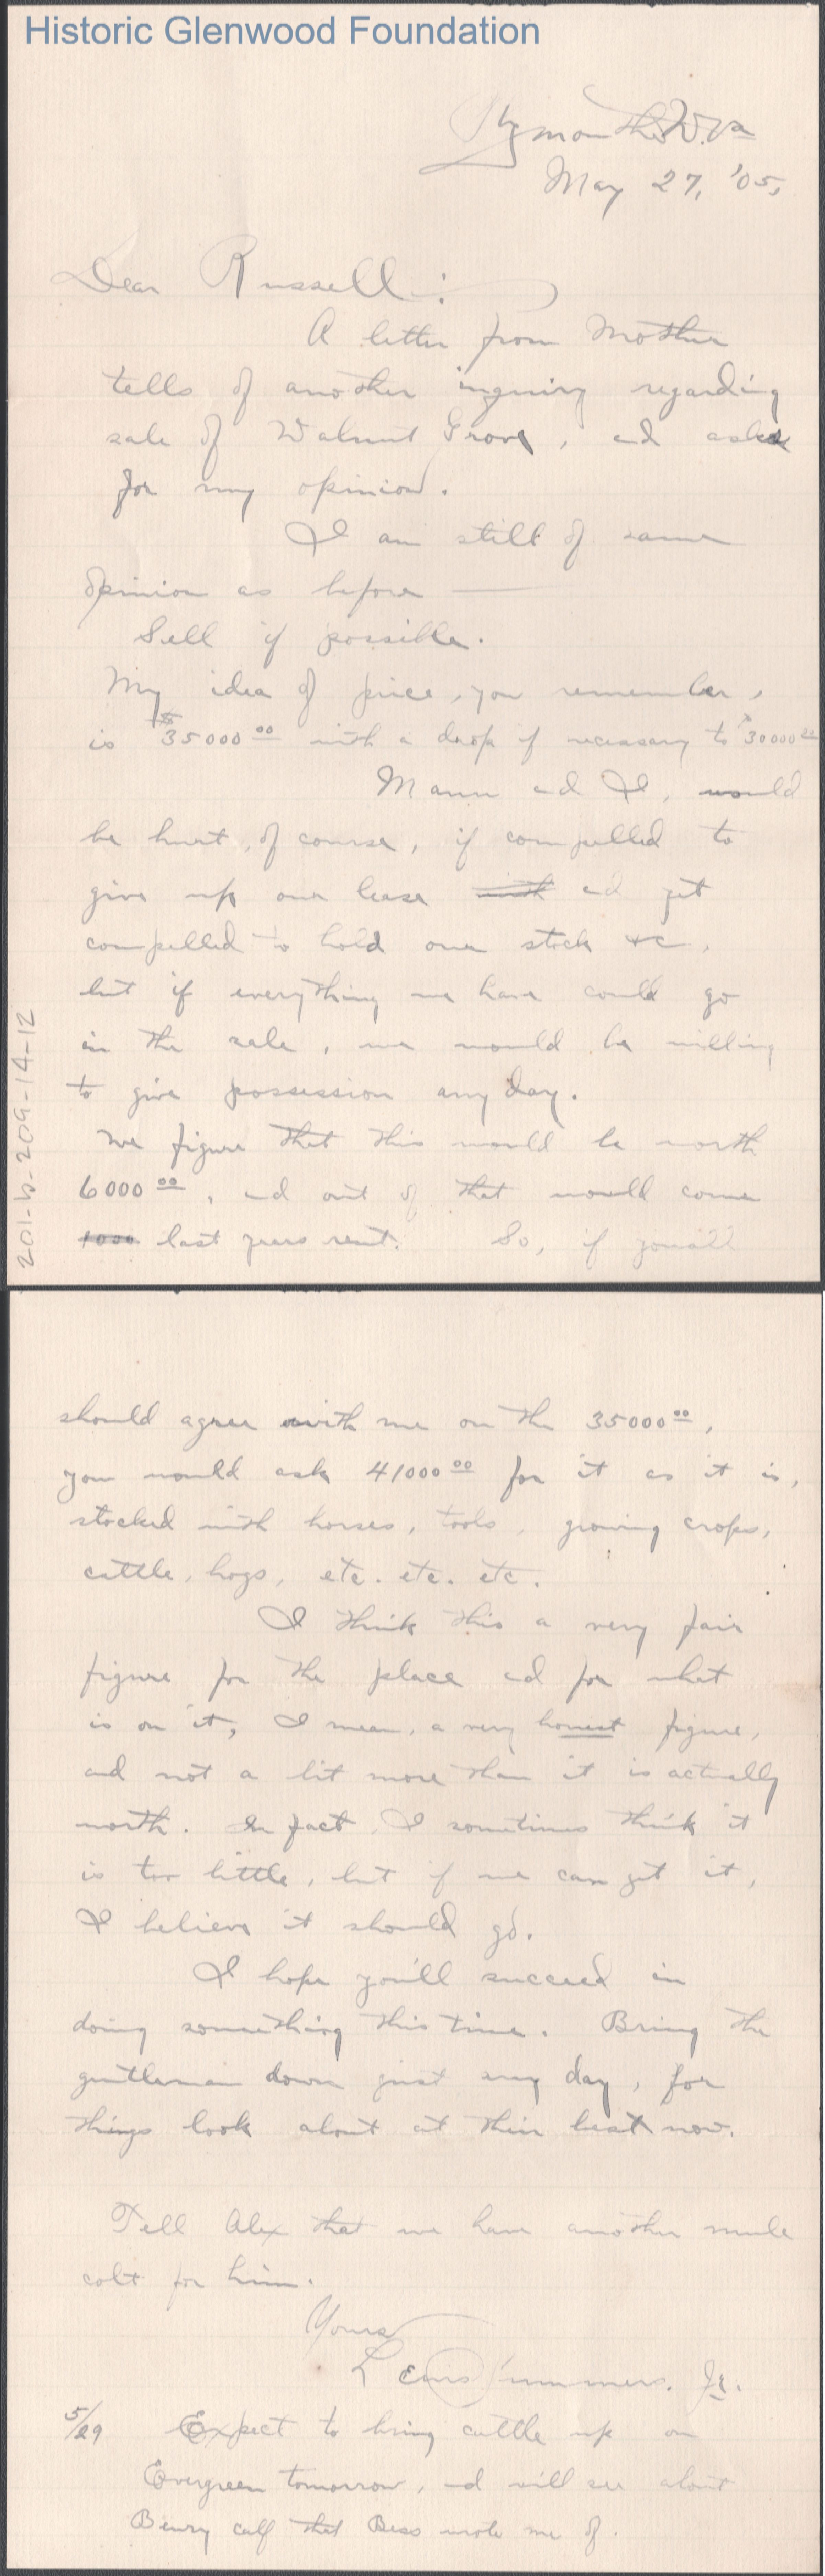 Historic Glenwood Foundation
Plymouth, W.Va
May 27, '05,
Dear Russell:
A letter from Mother
tells of another inquiry regarding
sale of Walnut Grove, and asks
for my opinion.
I am still of same
opinion as before —
Sell if possible.
My idea of price, you remember,
is $35000 00 with a drop if necessary to $30000 00
Mann and I, would
be hurt, of course, if compelled to
give up our lease with and yet
compelled to hold our stock &c,
but if everything we have could go
in the sale, we would be willing
to give possession any day.
We figure that this would be worth
6000 00, and out of that would come
1000 last years rent. So, if you'll
201-b-209-14-12
should agree with me on the 35000 00,
you would ask 41000 00 for it as it is,
stocked with horses, tools, growing crops,
cattle, hogs, etc. etc. etc.
I think this a very fair
figure for the place and for what
is on it, I mean, a very honest figure,
and not a bit more than it is actually
worth. In fact, I sometimes think it
is too little, but if we can get it,
I believe it should go.
I hope you'll succeed in
doing something this time. Bring the
gentleman down just any day, for
things look about at their best now.
Tell Alex that we have another mule
colt for him.
Yours
Lewis Summers. Jr.
5/29 Expect to bring cattle up on
Evergreen tomorrow, and will see about
calf that Bess wrote me of.